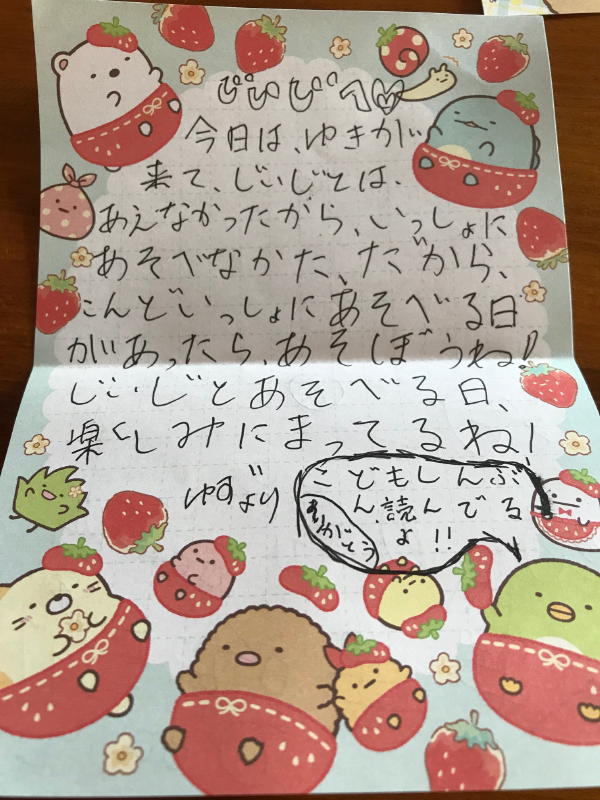 じいじへ♡
今日は、ゆきが
来て、じいじとは、
あえなかったがら、いっしょに
あそべなかた、だから、
こんどいっしょにあそべる日
があったら、あそぼうね!
じいじとあそべる日、
楽しみにまってるね!
ゆずより
こどもしんぶ
ん、読んでる
よ!!
ありがとう